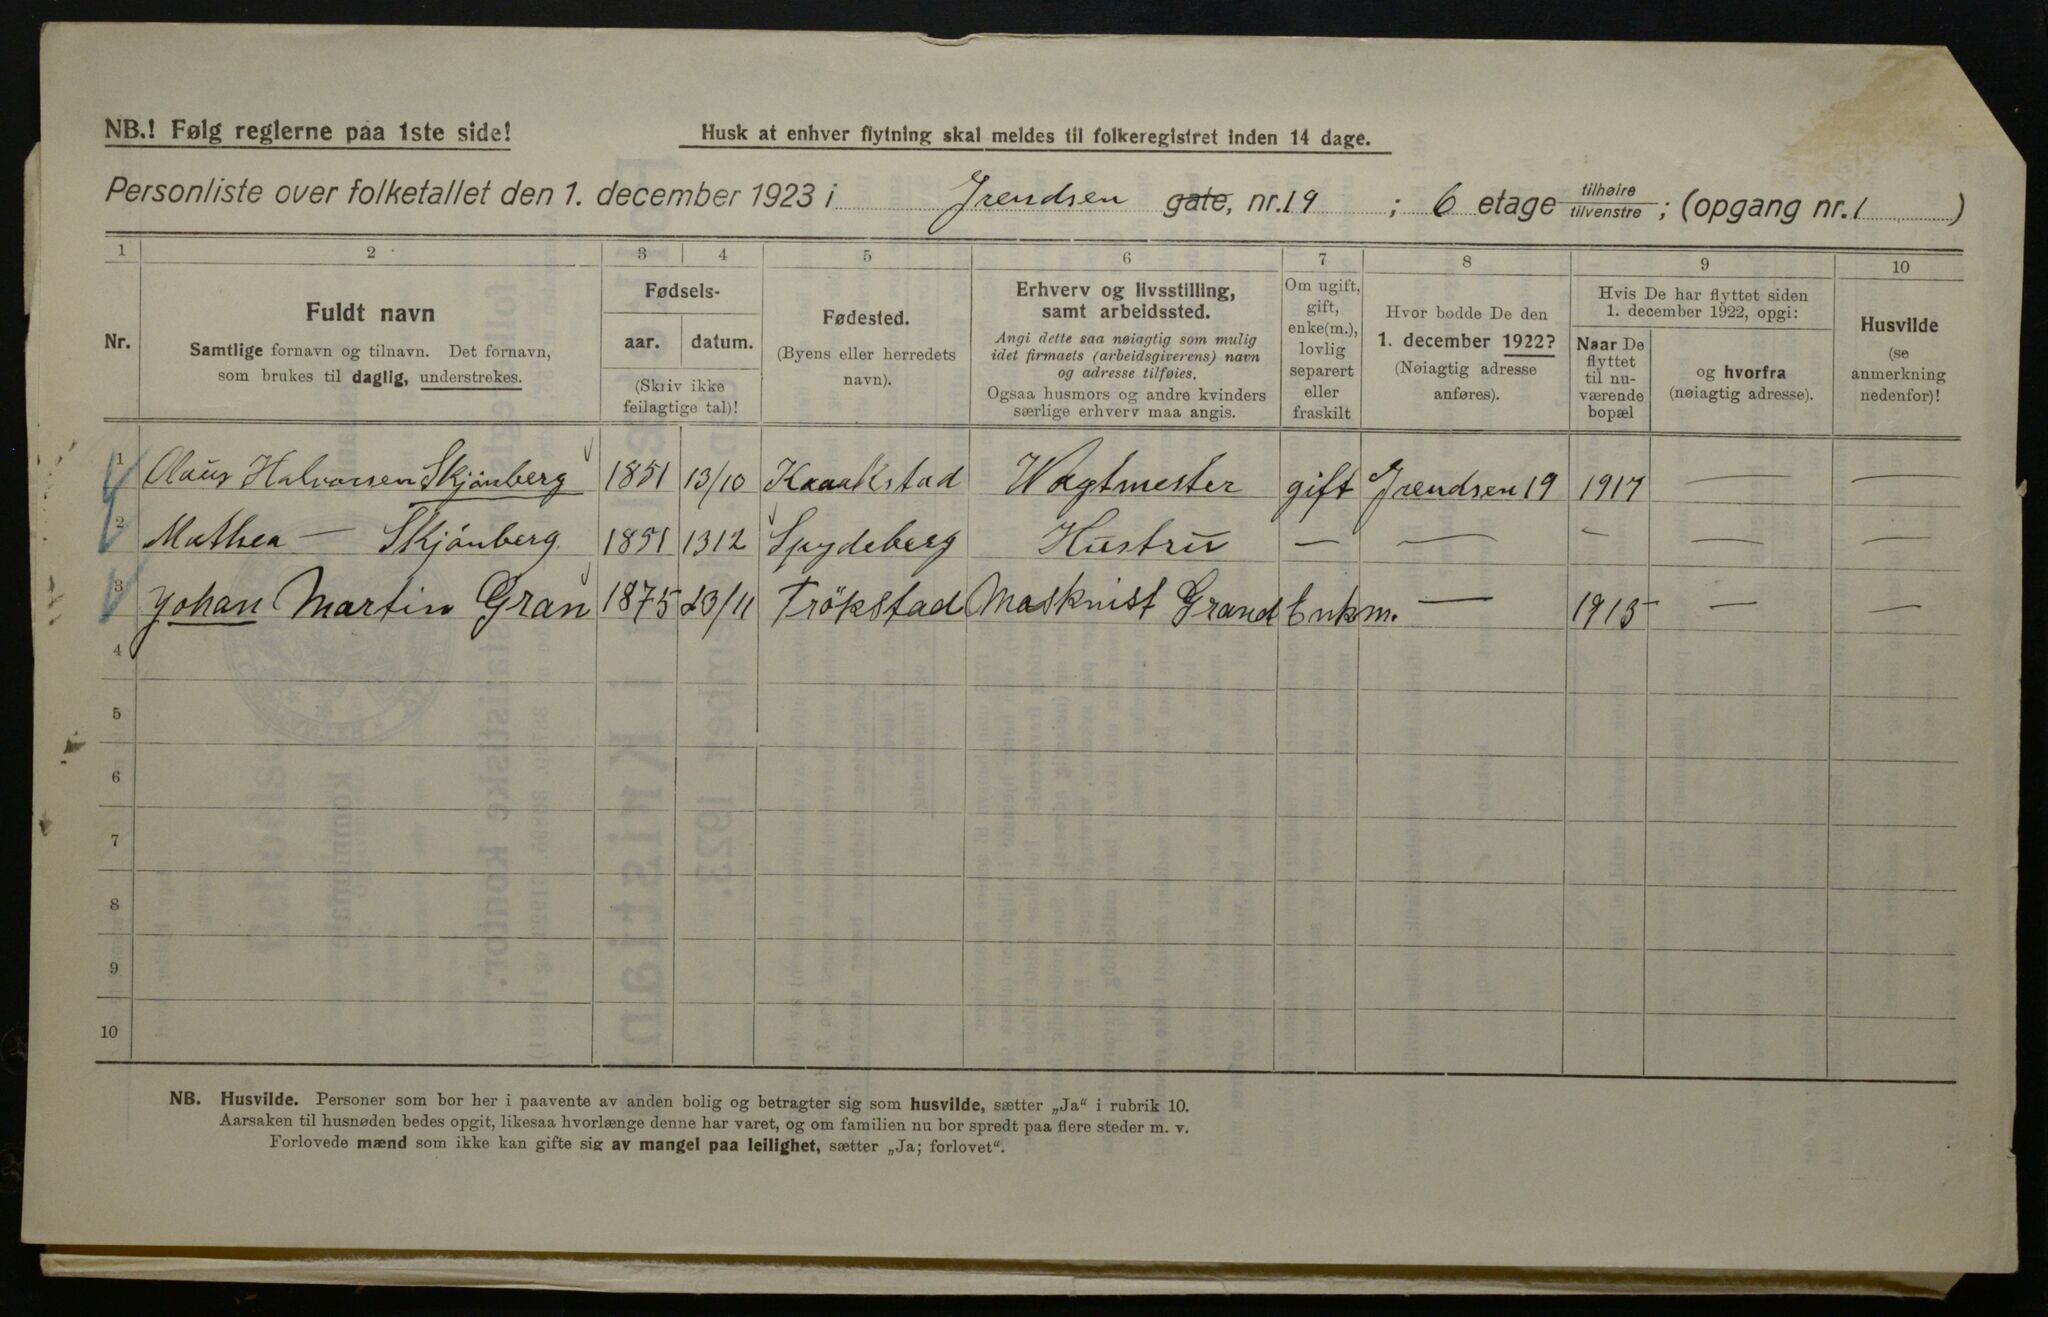 NB.! Følg reglerne paa 1ste side!
Husk at enhver flytning skal meldes til folkeregistret inden 14 dage.
Personliste over folketallet den 1. december 1923 i Grendsen gate, nr. 19 ; 6 etage tilhøire tilvenstre ; (opgang nr. 1 )
1 2 3 4 5 6 7 8 9 10
Nr.
Fuldt navn
Samtlige fornavn og tilnavn. Det fornavn,
som brukes til daglig, understrekes.
Fødsels-
aar. datum.
(Skriv ikke
feilagtige tal)!
Fødested.
(Byens eller herredets
navn).
Erhverv og livsstilling,
samt arbeidssted.
Angi dette saa nøiagtig som mulig
idet firmaets (arbeidsgiverens) navn
og adresse tilføies.
Ogsaa husmors og andre kvinders
særlige erhverv maa angis.
Om ugift,
gift,
enke(m.),
lovlig
separert
eller
fraskilt
Hvor bodde De den
1. december 1922?
(Nøiagtig adresse
anføres).
Hvis De har flyttet siden
1. december 1922, opgi:
Naar De
flyttet
til nu-
værende
bopæl
og hvorfra
(nøiagtig adresse).
Husvilde
(se
anmerkning
nedenfor)!
1 Olaus Halvorsen Skjönberg 1851 13/10 Wagtmester gift Grendsen 19 1917 — —
2 Mathea — Skjönberg 1851 1312 Spydeberg Hustru — — — — —
3 Johan Martin Gran 1875 23/11 Trökstad Maskinist Grand Enkm. — 1915 — —
4
5
6
7
8
9
10
NB. Husvilde. Personer som bor her i paavente av anden bolig og betragter sig som husvilde, sætter „Ja“ i rubrik 10.
Aarsaken til husnøden bedes opgit, likesaa hvorlænge denne har varet, og om familien nu bor spredt paa flere steder m. v.
Forlovede mænd som ikke kan gifte sig av mangel paa leilighet, sætter „Ja; forlovet“.